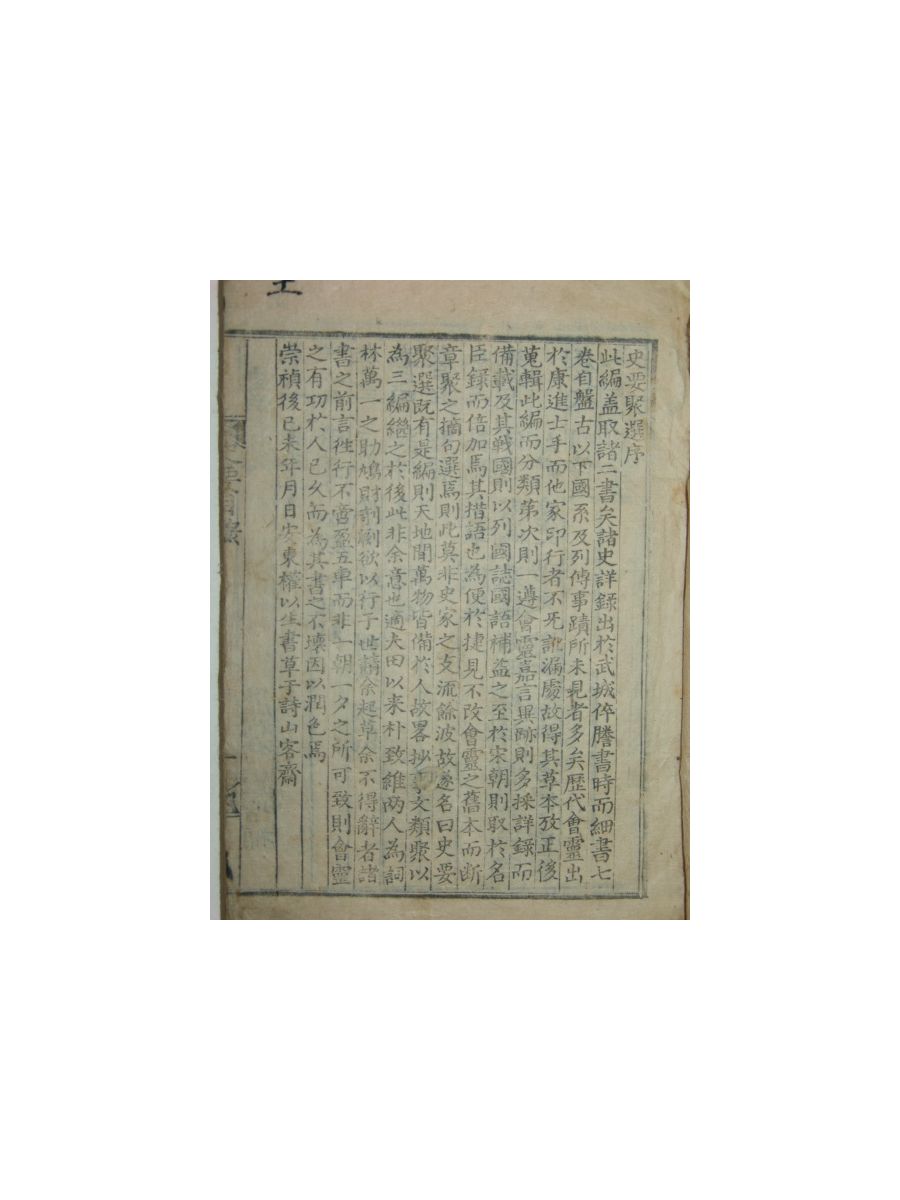 史要聚選序
此編盖取諸二書矣諸史詳録出於武城倅謄書時而細書七
卷自盤古以下國系及列傳事蹟所未見者多矣歷代會靈出
於康進士手而他家印行者不免訛漏處故得其草本攷正後
蒐輯此編而分類苐次則一遵會靈嘉言異跡則多採詳録而
備載及其戦國則以列國誌國語補益之至於宋朝則取於名
臣録而倍加焉其措語也為便於捷見不改會靈之舊本而断
章聚之摘句選焉則此莫非史家之支流餘波故遂名曰史要
聚選既有是編則天地間萬物皆備於人故畧抄事文類聚以
為三編繼之於後此非余意也適大田以来朴致維两人為詞
林萬一之助鳩財剞劂欲以行于世請余起草余不得辭者諸
書之前言徃行不啻盈五車而非一朝一夕之所可致則會靈
之有功於人已久而為其書之不壊因以潤色焉
崇禎後己未年月日安東權以生書草于詩山客齋